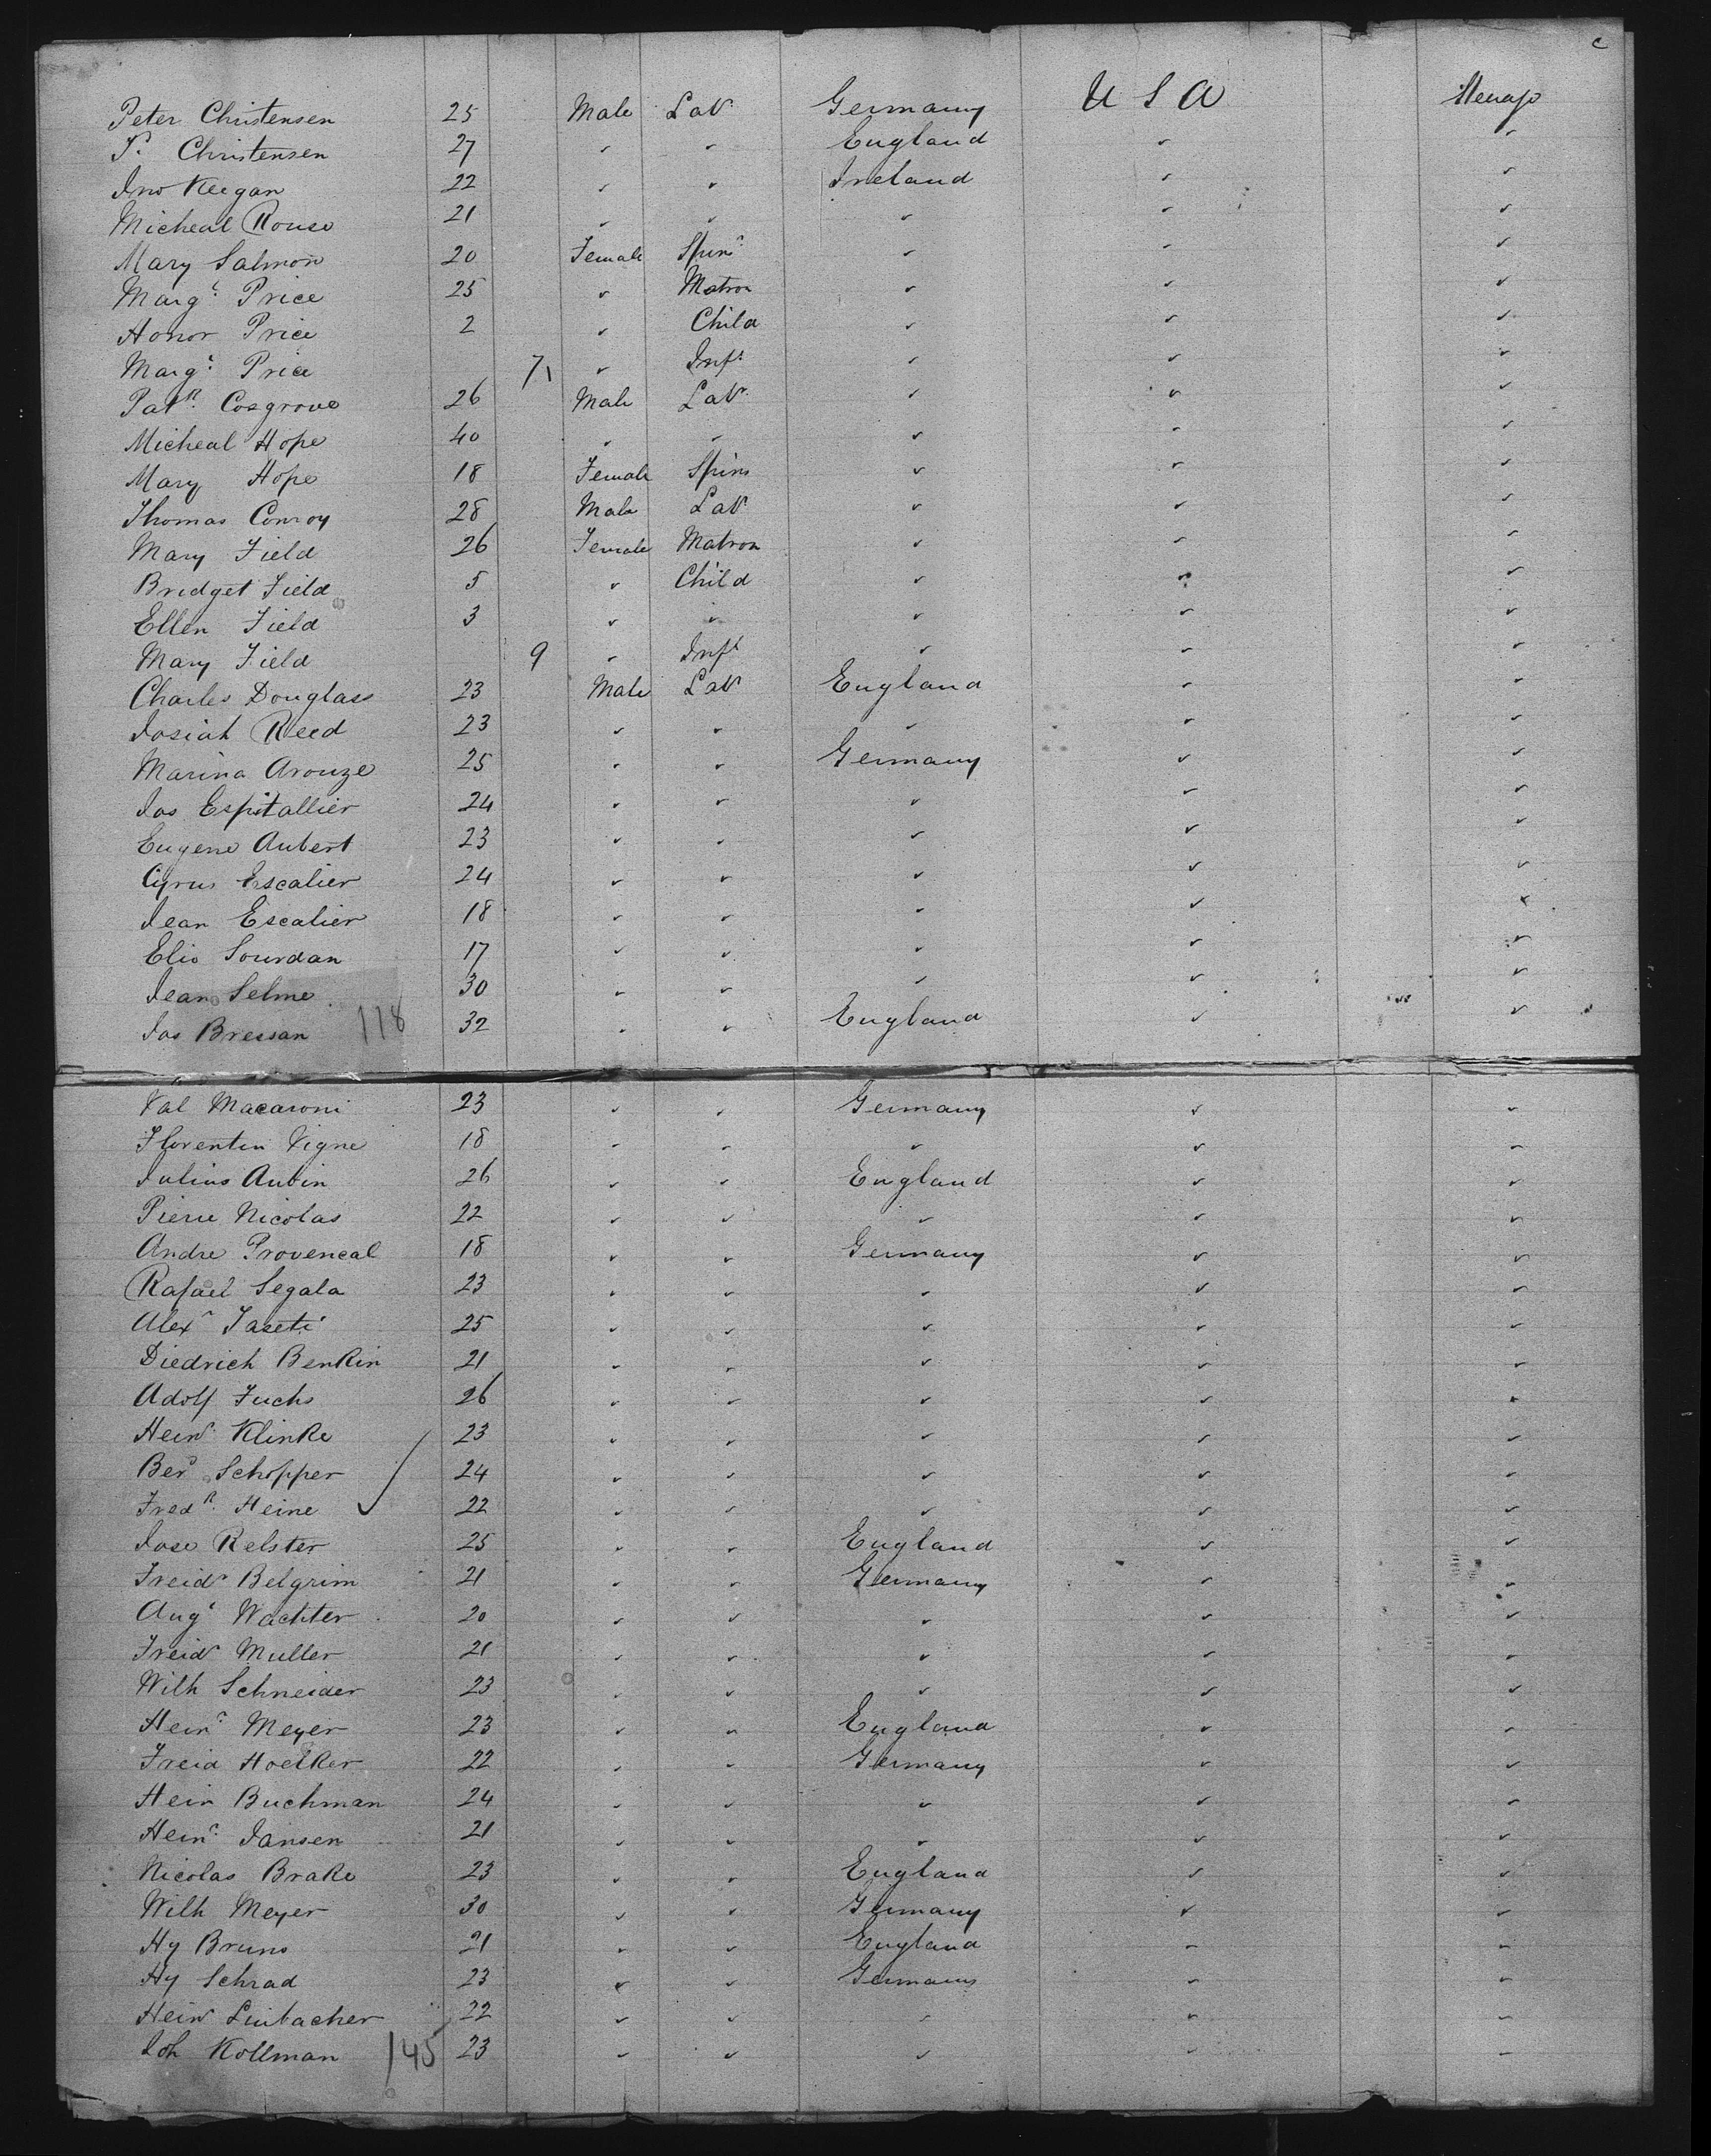 Peter Christensen 25 Male Labr Germany U S A Steerage
P. Christensen 27 " " England " "
Jno Keegan 22 " " Ireland " "
Micheal Rouse 21 " " " " "
Mary Salmon 20 Female Spinr " " "
Margt Price 25 " Matron " " "
Honor Price 2 " Child " " "
Margt Price 7 " Inft " " "
Patk Cosgrove 26 Male Labr " " "
Micheal Hope 40 " " " " "
Mary Hope 18 Female Spins " " "
Thomas Conroy 28 Male Labr " " "
Mary Field 26 Female Matron " " "
Bridget Field 5 " Child " " "
Ellen Field 3 " " " " "
Mary Field 9 " Inft " " "
Charles Douglass 23 Male Labr England " "
Josiah Reed 23 " " " " "
Marina Arouze 25 " " Germany " "
Jos Espitallier 24 " " " " "
Eugene Aubert 23 " " " " "
Cyrus Escalier 24 " " " " "
Jean Escalier 18 " " " " "
Elio Sourdan 17 " " " " "
Jean Selme 30 " " " " "
Jos Bressan 118 32 " " England " "
Val Macaroni 23 " " Germany " "
Florentin Vigne 18 " " " " "
Julius Aubin 26 " " England " "
Pierre Nicolas 22 " " " " "
Andre Provencal 18 " " Germany " "
Rafael Segala 23 " " " " "
Alexr 25 " " " " "
Diedrich Benkin 21 " " " " "
Adolf Fuchs 26 " " " " "
Heinr Klinke 23 " " " " "
Berd Schopper 24 " " " " "
Fredk Heine 22 " " " " "
Jose Relster 25 " " England " "
Freidr Belgrim 21 " " Germany " "
Augt Wachter 20 " " " " "
Freidr Muller 21 " " " " "
Wilh Schneider 23 " " " " "
Heinr Meyer 23 " " England " "
Freid Hoelker 22 " " Germany " "
Hein Buchman 24 " " " " "
Heinr Jansen 21 " " " " "
Nicolas Brake 23 " " England " "
Wilh Meyer 30 " " Germany " "
Hy Bruns 21 " " England " "
Hy Schrad 23 " " Germany " "
Heinr Linbacher 22 " " " " "
Joh Kollman 145 23 " " " " "